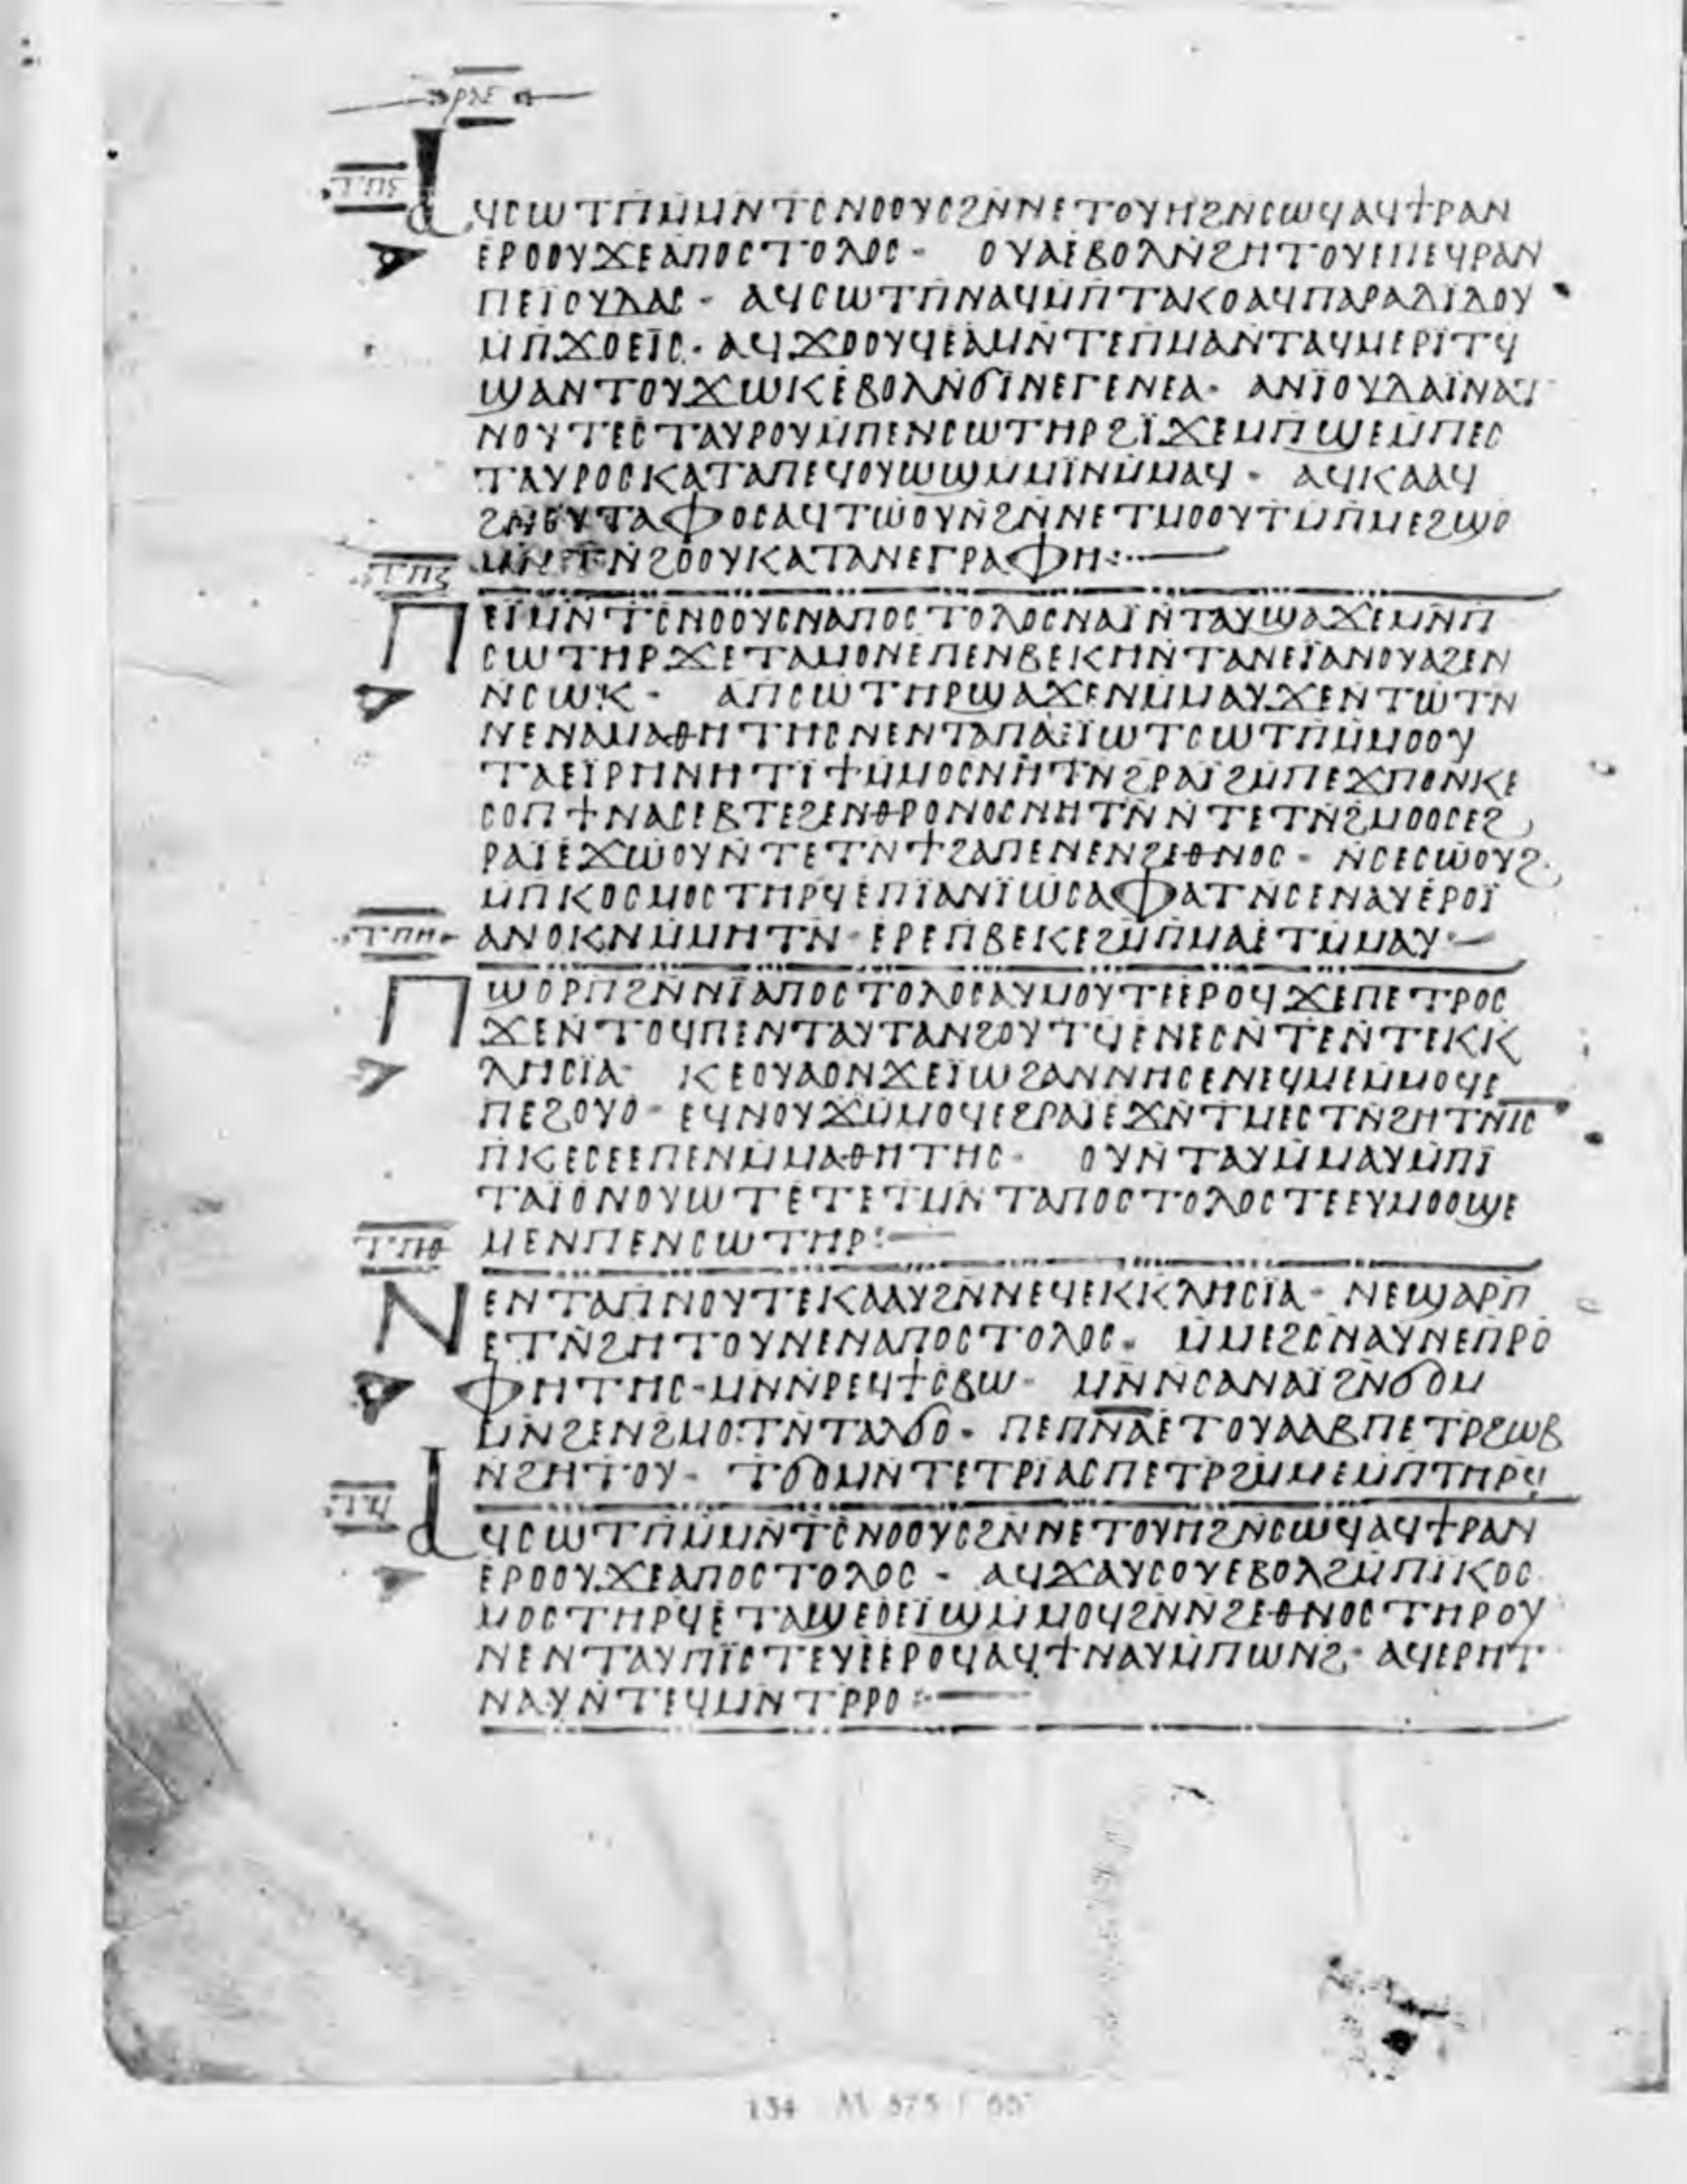 ⲣⲗⲉ
ⲧⲡⲋ
ⲁϥⲥⲱⲧⲡⲙ̅ⲙⲛⲧⲥⲛⲟⲟⲩⲥϩⲛⲛⲉⲧⲟⲩⲏϩⲛⲥⲱϥⲁϥϯⲣⲁⲛ
ⲉⲣⲟⲟⲩϫⲉⲁⲡⲟⲥⲧⲟⲗⲟⲥ - ⲟⲩⲁⲉⲃⲟⲗⲛϩⲏⲧⲟⲩⲉⲡⲉϥⲣⲁⲛ
ⲡⲉⲓ̈ⲟⲩⲇⲁⲥ - ⲁϥⲥⲱⲧⲡⲛⲁϥⲙⲡⲧⲁⲕⲟⲁϥⲡⲁⲣⲁⲇⲓⲇⲟⲩ
ⲙⲡϫⲟⲉⲓ̈ⲥ · ⲁϥϫⲟⲟⲩϥⲉⲁⲙⲛⲧⲉⲡⲙⲁⲛⲧⲁϥⲙⲉⲣⲓ̈ⲧϥ
ϣⲁⲛⲧⲟⲩϫⲱⲕⲉⲃⲟⲗⲛϭⲓ̈ⲛⲉⲅⲉⲛⲉⲁ · ⲁⲛⲓ̈ⲟⲩⲇⲁⲓ̈ⲛⲁⲧ
ⲛⲟⲩⲧⲉⲥⲧⲁⲩⲣⲟⲩⲙⲡⲉⲛⲥⲱⲧⲏⲣϩⲓ̈ϫⲉⲙⲡϣⲉⲙⲡⲉⲥ
ⲧⲁⲩⲣⲟⲥⲕⲁⲧⲁⲡⲉϥⲟⲩⲱϣⲙⲙⲓ̈ⲛⲙⲙⲁϥ · ⲁϥⲕⲁⲁϥ
ϩⲛⲟⲩⲧⲁⲫⲟⲥⲁϥⲧⲱⲟⲩⲛϩⲛⲛⲉⲧⲙⲟⲟⲩⲧⲙⲡⲙⲉϩϣⲟ
ⲙⲛⲧⲛϩⲟⲟⲩⲕⲁⲧⲁⲛⲉⲅⲣⲁⲫⲏ :·—
ⲧⲡⲍ
ⲡⲉⲓ̈ⲙⲛⲧⲥⲛⲟⲟⲩⲥⲛⲁⲡⲟⲥⲧⲟⲗⲟⲥⲛⲁⲓ̈ⲛⲧⲁⲩϣⲁϫⲉⲙⲛⲡ
ⲥⲱⲧⲏⲣϫⲉⲧⲁⲙⲟⲛⲉⲡⲉⲛⲃⲉⲕⲏⲛⲧⲁⲛⲉⲓ̈ⲁⲛⲟⲩⲁϩⲉⲛ
ⲛⲥⲱⲕ - ⲁⲡⲥⲱⲧⲏⲣϣⲁϫⲉⲛⲙⲙⲁⲩϫⲉⲛⲧⲱⲧⲛ
ⲛⲉⲛⲁⲙⲁⲑⲏⲧⲏⲥⲛⲉⲛⲧⲁⲡⲁⲓ̈ⲱⲧⲥⲱⲧⲡⲙⲙⲟⲟⲩ
ⲧⲁⲉⲓ̈ⲣⲏⲛⲏⲧⲓ̈ϯⲙⲙⲟⲥⲛⲏⲧⲛϩⲣⲁⲓ̈ϩⲙⲡⲉϫⲡⲟⲛⲕⲉ
ⲥⲟⲡϯⲛⲁⲥⲉⲃⲧⲉϩⲉⲛⲑⲣⲟⲛⲟⲥⲛⲏⲧⲛⲛⲧⲉⲧⲛϩⲙⲟⲟⲥⲉϩ
ⲣⲁⲓ̈ⲉϫⲱⲟⲩⲛⲧⲉⲧⲛϯϩⲁⲡⲉⲛⲉⲛϩⲉⲑⲛⲟⲥ - ⲛⲥⲉⲥⲱⲟⲩϩ
ⲙⲡⲕⲟⲥⲙⲟⲥⲧⲏⲣϥⲉⲡⲓ̈ⲁⲛⲓ̈ⲱⲥⲁⲫⲁⲧⲛⲥⲉⲛⲁⲩⲉⲣⲟⲓ̈
ⲁⲛⲟⲕⲛⲙⲙⲏⲧⲛ · ⲉⲣⲉⲡⲃⲉⲕⲉϩⲙⲡⲙⲁⲉⲧⲙⲙⲁⲩ ·—
ⲧⲡⲏ
ⲡϣⲟⲣⲡϩⲛⲛⲓ̈ⲁⲡⲟⲥⲧⲟⲗⲟⲥⲁⲩⲙⲟⲩⲧⲉⲉⲣⲟϥϫⲉⲡⲉⲧⲣⲟⲥ
ϫⲉⲛⲧⲟϥⲡⲉⲛⲧⲁⲩⲧⲁⲛϩⲟⲩⲧϥⲉⲛⲉⲥⲛⲧⲉⲛⲧⲉⲕⲕ
ⲗⲏⲥⲓ̈ⲁ · ⲕⲉⲟⲩⲁⲟⲛϫⲉⲓ̈ⲱϩⲁⲛⲛⲏⲥⲉⲛⲉϥⲙⲉⲙⲙⲟϥⲉ
ⲡⲉϩⲟⲩⲟ - ⲉϥⲛⲟⲩϫⲙⲙⲟϥⲉϩⲣⲁⲓⲉϫⲛⲧⲙⲉⲥⲧⲛϩⲏⲧⲛⲓ̅ⲥ̅
ⲡⲕⲉⲥⲉⲉⲡⲉⲛⲙⲙⲁⲑⲏⲧⲏⲥ · ⲟⲩⲛⲧⲁⲩⲙⲙⲁⲩⲙⲡⲓ̈
ⲧⲁⲓ̈ⲟⲛⲟⲩⲱⲧⲉⲧⲉⲧⲙⲛⲧⲁⲡⲟⲥⲧⲟⲗⲟⲥⲧⲉⲉⲩⲙⲟⲟϣⲉ
ⲙⲉⲛⲡⲉⲛⲥⲱⲧⲏⲣ :—
ⲧⲡⲑ
ⲛⲉⲛⲧⲁⲡⲛⲟⲩⲧⲉⲕⲁⲁⲩϩⲛⲛⲉϥⲉⲕⲕⲗⲏⲥⲓ̈ⲁ - ⲛⲉϣⲁⲣⲡ
ⲉⲧⲛϩⲏⲧⲟⲩⲛⲉⲛⲁⲡⲟⲥⲧⲟⲗⲟⲥ · ⲙⲙⲉϩⲥⲛⲁⲩⲛⲉⲡⲣⲟ
ⲫⲏⲧⲏⲥ - ⲙⲛⲛⲣⲉϥϯⲥⲃⲱ · ⲙⲛⲛⲥⲁⲛⲁⲓ̈ϩⲛϭⲟⲙ
ⲙⲛϩⲉⲛϩⲙⲟⲧⲛⲧⲁⲗϭⲟ · ⲡⲉⲡ̅ⲛ̅ⲁ̅ⲉⲧⲟⲩⲁⲁⲃⲡⲉⲧⲣϩⲱⲃ
ⲛϩⲏⲧⲟⲩ - ⲧϭⲟⲙⲛⲧⲉⲧⲣⲓ̈ⲁⲥⲡⲉⲧⲣϩⲙⲙⲉⲙⲡⲧⲏⲣϥ
ⲧϥ
ⲁϥⲥⲱⲧⲡⲙⲙⲛⲧⲥⲛⲟⲟⲩⲥϩⲛⲛⲉⲧⲟⲩⲏϩⲛⲥⲱϥⲁϥϯⲣⲁⲛ
ⲉⲣⲟⲟⲩϫⲉⲁⲡⲟⲥⲧⲟⲗⲟⲥ - ⲁϥϫⲁⲩⲥⲟⲩⲉⲃⲟⲗϩⲙⲡⲓⲕⲟⲥ
ⲙⲟⲥⲧⲏⲣϥⲉⲧⲁϣⲉⲟⲉⲓ̈ϣⲙⲙⲟϥϩⲛⲛϩⲉⲑⲛⲟⲥⲧⲏⲣⲟⲩ
ⲛⲉⲛⲧⲁⲩⲡⲓ̈ⲥⲧⲉⲩⲉⲉⲣⲟϥⲁϥϯⲛⲁⲩⲙⲡⲱⲛϩ · ⲁϥⲉⲣⲏⲧ
ⲛⲁⲩⲛⲧⲉϥⲙⲛⲧⲣⲣⲟ :—